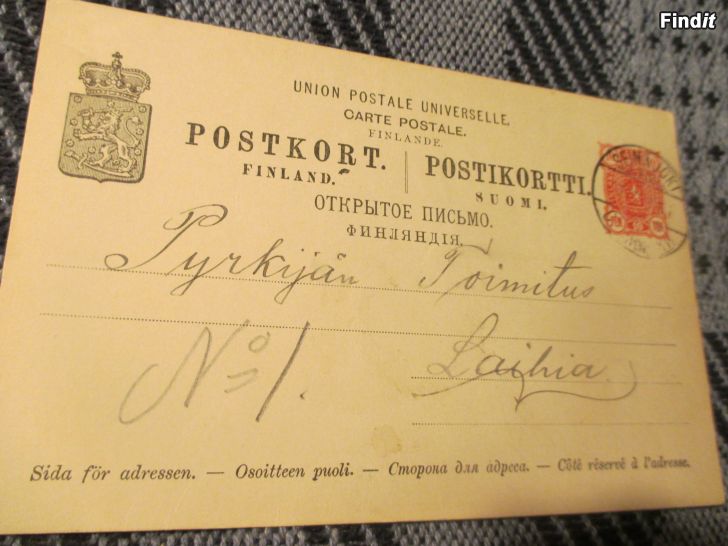 Findit
UNION POSTALE UNIVERSELLE.
CARTE POSTALE.
FINLANDE.
POSTKORT. | POSTIKORTTI.
FINLAND. SUOMI.
ОТКРЫТОЕ ПИСЬМО.
ФИНЛЯНДІЯ.
Pyrkijän Toimitus
Laihia
No 1.
Sida för adressen. — Osoitteen puoli. — Сторона для адреса. — Côté réservé à l'adresse.